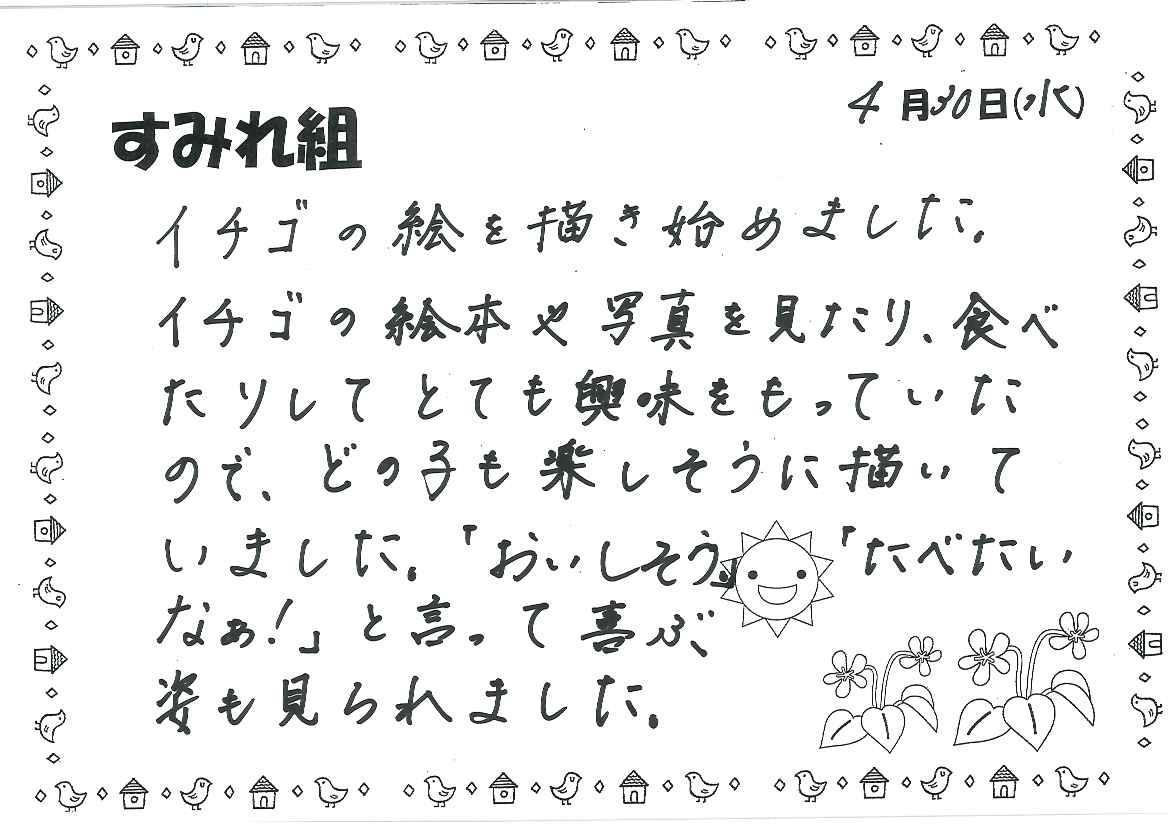 4月30日(水)
すみれ組
イチゴの絵を描き始めました。
イチゴの絵本や写真を見たり、食べ
たりしてとても興味をもっていた
ので、どの子も楽しそうに描いて
いました。「おいしそう」「たべたい
なぁ!」と言って喜ぶ
姿も見られました。